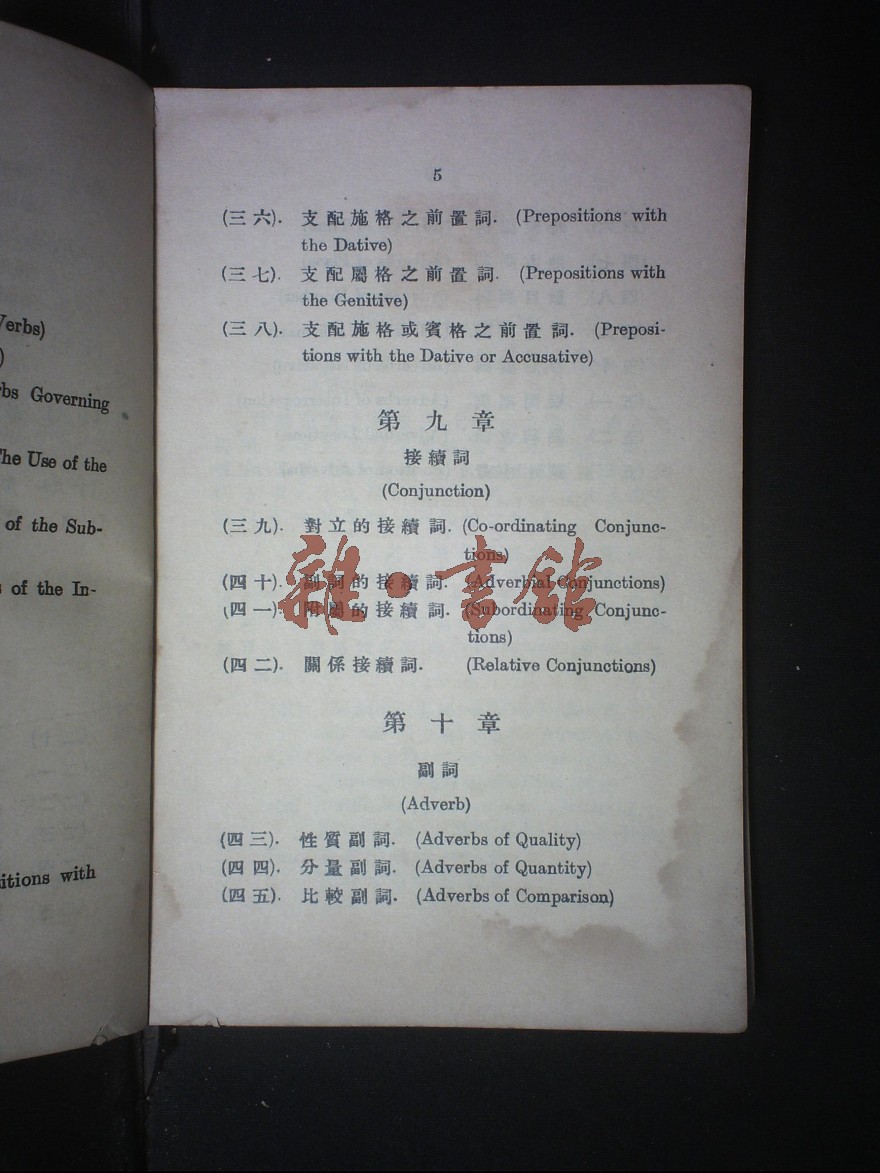 Verbs)
)
rbs Governing
The Use of the
of the Sub-
s of the In-
sitions with
5
(三六). 支配施格之前置詞. (Prepositions with
the Dative)
(三七). 支配屬格之前置詞. (Prepositions with
the Genitive)
(三八). 支配施格或賓格之前置詞. (Preposi-
tions with the Dative or Accusative)
第九章
接續詞
(Conjunction)
(三九). 對立的接續詞. (Co-ordinating Conjunc-
tions)
(四十). 副詞的接續詞. (Adverbial Conjunctions)
(四一). 附屬的接續詞. (Subordinating Conjunc-
tions)
(四二). 關係接續詞. (Relative Conjunctions)
雜·書館
第十章
副詞
(Adverb)
(四三). 性質副詞. (Adverbs of Quality)
(四四). 分量副詞. (Adverbs of Quantity)
(四五). 比較副詞. (Adverbs of Comparison)